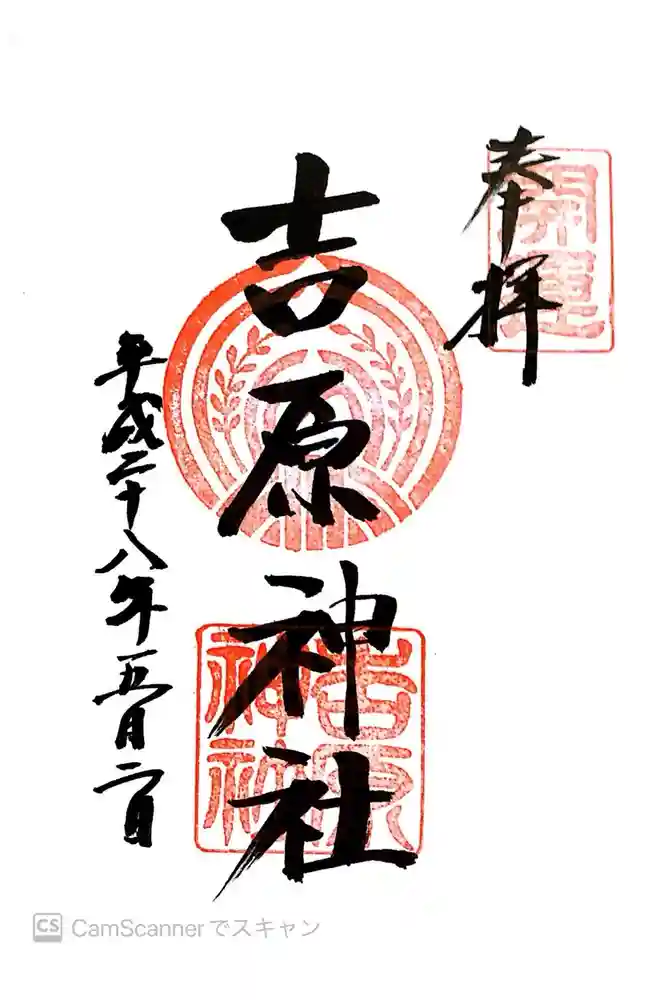 奉拝
開運
吉原神社
吉原
神社
平成二十八年五月二日
CS CamScannerでスキャン